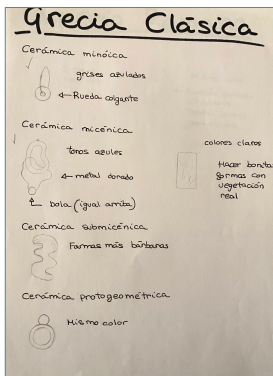 Grecia Clásica
Cerámica minóica
grises azulados
Rueda colgante
Cerámica micénica
tonos azules
metal dorado
bola (igual arriba)
colores claros
Hacer bonita
formas con
vegetación
real
Cerámica submicénica
Formas más bárbaras
Cerámica protogeométrica
Mismo color